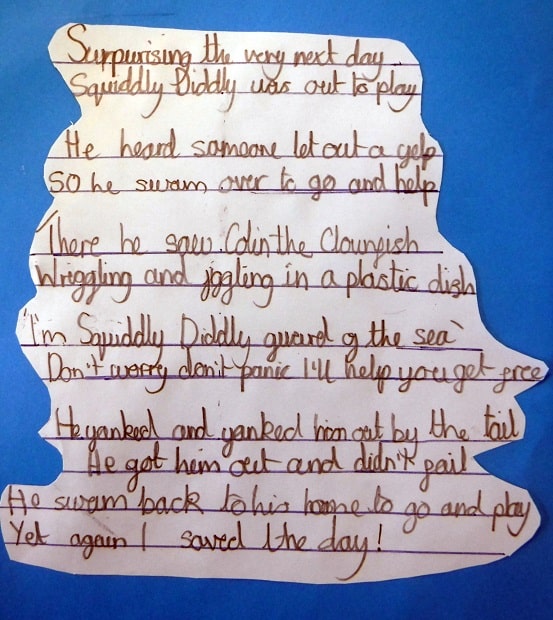 Surpurising the very next day
Squiddly Diddly was out to play
He heard someone let out a yelp
So he swam over to go and help
There he saw Colin the Clownfish
Wriggling and jiggling in a plastic dish
'I'm Squiddly Diddly guard of the sea'
Don't worry don't panic I'll help you get free
He yanked and yanked him out by the tail
He got him out and didn't fail
He swam back to his home to go and play
Yet again I saved the day!